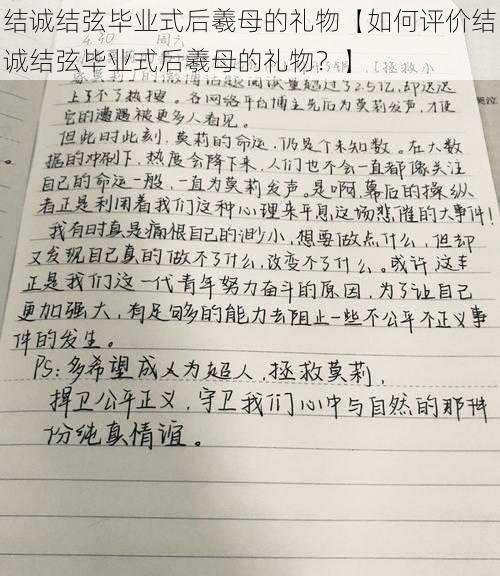 结诚结弦毕业式后羲母的礼物【如何评价结
诚结弦毕业式后羲母的礼物？】
4.30 周六
[拯救小
莫莉]的微博话题阅读量超过了2.5亿,却迟迟
上不了热搜。各网络平台博主先后为莫莉发声,才使
它的遭遇被更多人看见。
但此时此刻,莫莉的命运,仍是个未知数。在大数
据的冲刷下,热度会降下来,人们也不会一直都像关注
自己的命运一般,一直为莫莉发声。是啊,幕后的操纵
者正是利用着我们这种心理来平息这场悲催的大事件!
我有时真是痛恨自己的渺小,想要做点什么,但却
又发现自己真的做不了什么,改变不了什么。或许,这
正是我们这一代青年努力奋斗的原因,为了让自己
更加强大,有足够的能力去阻止一些不公平不正义事
件的发生。
PS:多希望成为超人,拯救莫莉,
捍卫公平正义,守卫我们心中与自然的那
份纯真情谊。